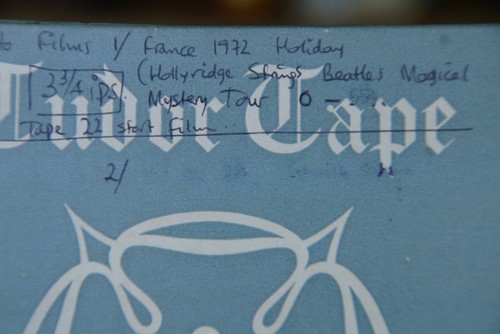 to Films 1/ France 1972 Holiday
3 3/4 i.p.s. (Hollyridge Strings Beatles Magical
Mystery Tour 0 -
Tudor Tape
Tape 22 start film..
2/